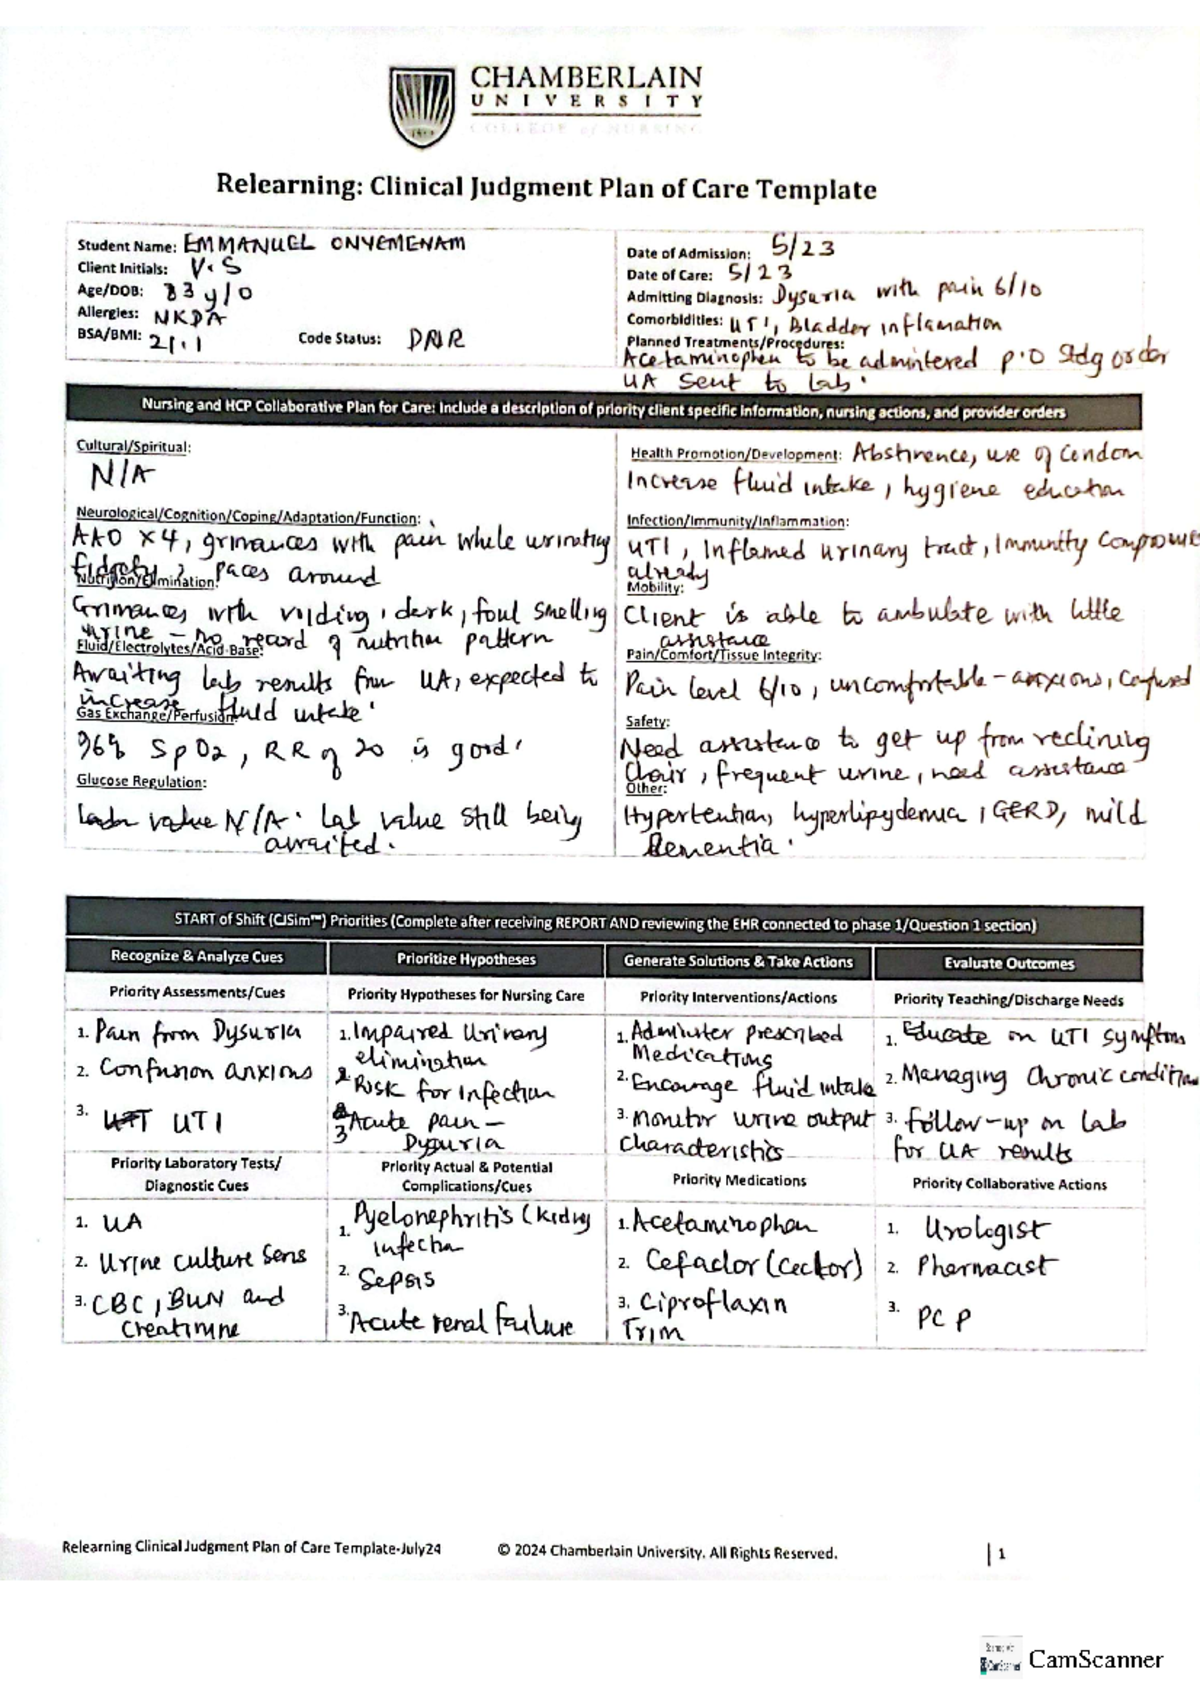 CHAMBERLAIN
UNIVERSITY
COLLEGE of NURSING
Relearning: Clinical Judgment Plan of Care Template
Student Name: EMMANUEL ONYEMENAM
Client Initials: V.S
Age/DOB: 83 y/o
Allergies: NKDA
BSA/BMI: 21.1 Code Status: DNR
Date of Admission: 5/23
Date of Care: 5/23
Admitting Diagnosis: Dysuria with pain 6/10
Comorbidities: UTI, Bladder inflamation
Planned Treatments/Procedures:
Acetaminophen to be admintered p.o Stdg order
UA sent to lab.
Nursing and HCP Collaborative Plan for Care: Include a description of priority client specific information, nursing actions, and provider orders
Cultural/Spiritual:
N/A
Neurological/Cognition/Coping/Adaptation/Function:
AAO x4, grimances with pain while urinating
fidgety, paces around
Nutrition/Elimination:
Grimances with voiding, dark, foul smelling
urine - no record of nutrition pattern
Fluid/Electrolytes/Acid-Base:
Awaiting lab results from UA, expected to
increase fluid intake.
Gas Exchange/Perfusion:
96% SpO2, RR of 20 is good.
Glucose Regulation:
value N/A. Lab value still being
awaited.
Health Promotion/Development: Abstinence, use of condom
Increase fluid intake, hygiene education
Infection/Immunity/Inflammation:
UTI, Inflamed urinary tract, Immunity compromise
already
Mobility:
Client is able to ambulate with little
assistance
Pain/Comfort/Tissue Integrity:
Pain level 6/10, uncomfortable - anxious, Confused
Safety:
Need assistance to get up from reclining
Chair, frequent urine, need assistance
Other:
Hypertention, hyperlipydemia, GERD, mild
dementia.
START of Shift (CJSim™) Priorities (Complete after receiving REPORT AND reviewing the EHR connected to phase 1/Question 1 section)
Recognize & Analyze Cues Prioritize Hypotheses Generate Solutions & Take Actions Evaluate Outcomes
Priority Assessments/Cues
1. Pain from Dysuria
2. Confusion anxions
3. UTI
Priority Hypotheses for Nursing Care
1. Impaired Urinary
elimination
2. Risk for Infection
3 Acute pain -
Dysuria
Priority Interventions/Actions
1. Adminter prescribed
Medications
2. Encourage fluid intake
3. Monitor urine output
characteristics
Priority Teaching/Discharge Needs
1. Educate on UTI symptoms
2. Managing Chronic condition
3. Follow-up on Lab
for UA results
Priority Laboratory Tests/
Diagnostic Cues
1. UA
2. Urine culture Sens
3. CBC, BUN and
Creatinine
Priority Actual & Potential
Complications/Cues
1. Pyelonephritis (kidney
infection
2. Sepsis
3. Acute renal failure
Priority Medications
1. Acetaminophen
2. Cefaclor (Ceclor)
3. Ciproflaxin
Trim
Priority Collaborative Actions
1. Urologist
2. Pharmacist
3. PCP
Relearning Clinical Judgment Plan of Care Template-July24 © 2024 Chamberlain University. All Rights Reserved. | 1
CamScanner